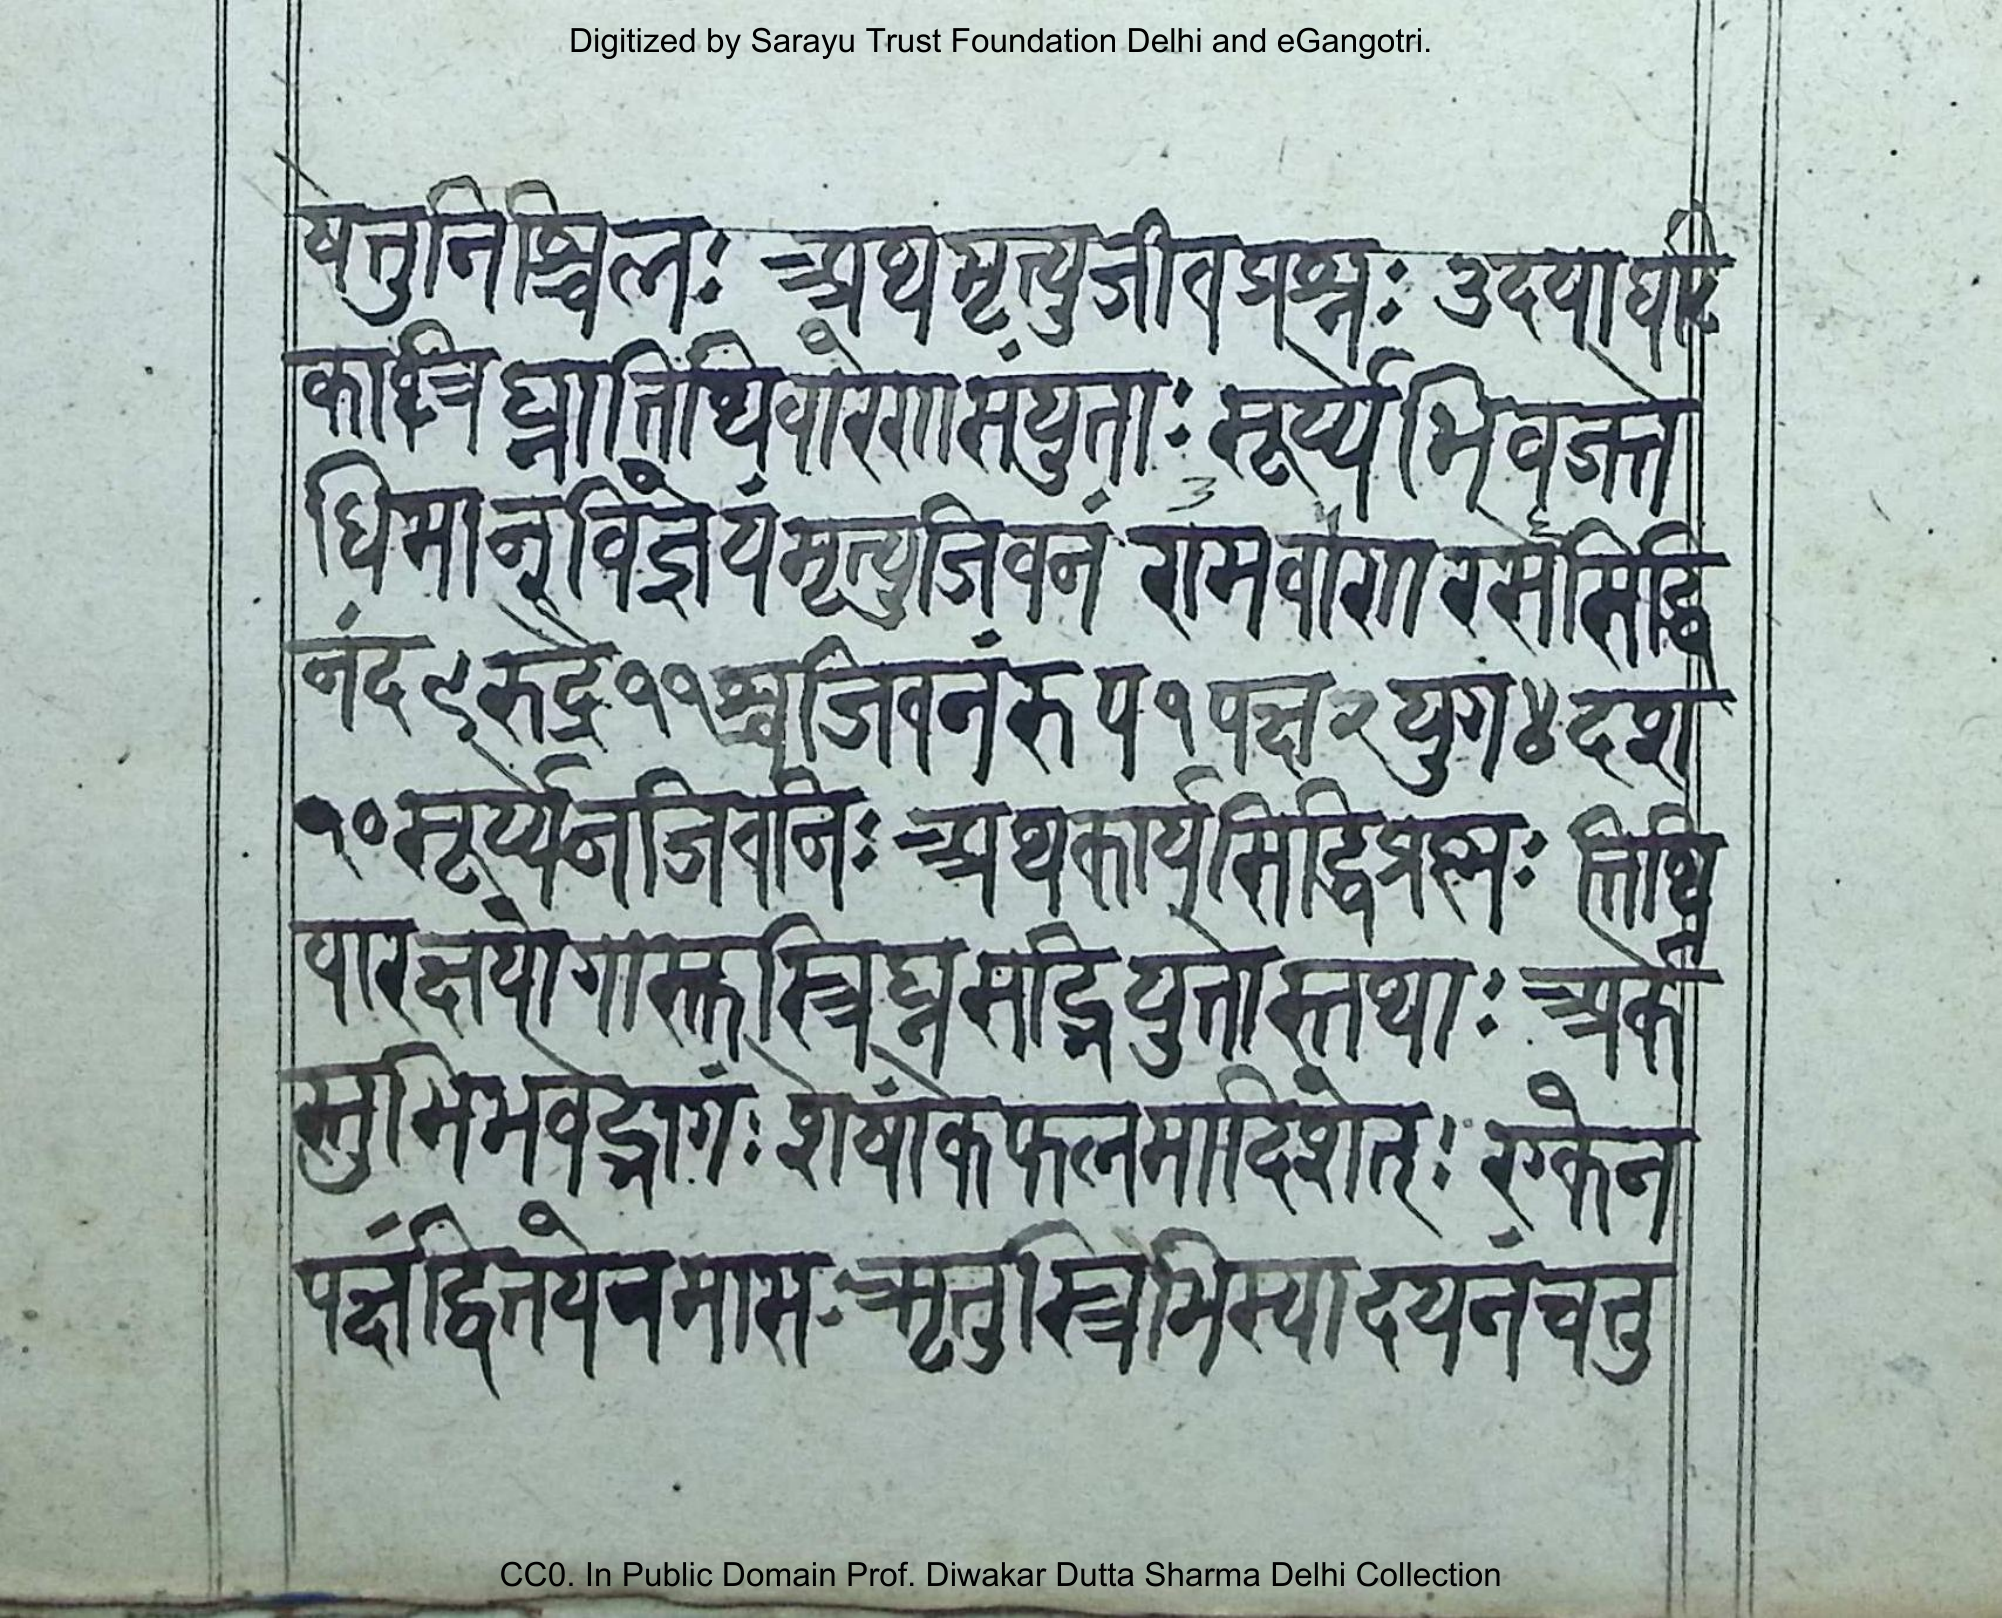 Digitized by Sarayu Trust Foundation Delhi and eGangotri.
षेत्तुनिश्चिलः अथमृत्युजीवप्रश्नः उदयाघटि
काश्च घ्नातिथिवारेणसंयुताः सूर्य्ये भिवज्ते
धिमान् विज्ञेयंमृत्युजिवनं रामवाण रससिद्धि
नंद ९ रुद्रे ११ श्चजिवनंरुप १ पक्ष २ युग ४ दश
१० सूर्य्येनजिवनिः अथकार्यसिद्धिप्रह्नः तिथि
वारक्षयोगास्तत्रिघ्न सद्भियुतास्तथाः अर्क
स्तुभिभवेद्भागंः शेषांकेफलमादिशेत्ः एकेन
पक्षंद्वितयेनमासः ऋतुस्त्रिभिस्यादयनंचतु
CC0. In Public Domain Prof. Diwakar Dutta Sharma Delhi Collection